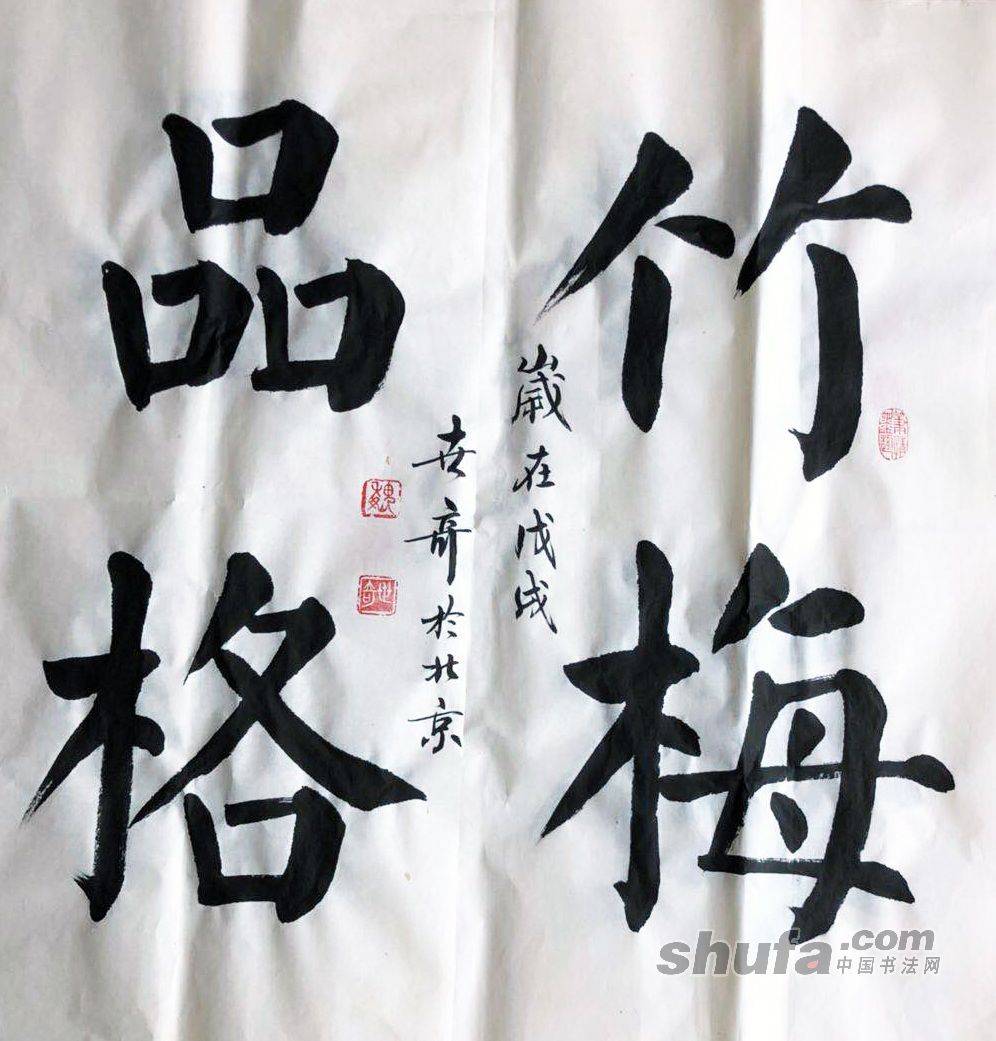 竹梅
品格
歲在戊戌
世奇於北京
魏
世奇
shufa.com
中国书法网